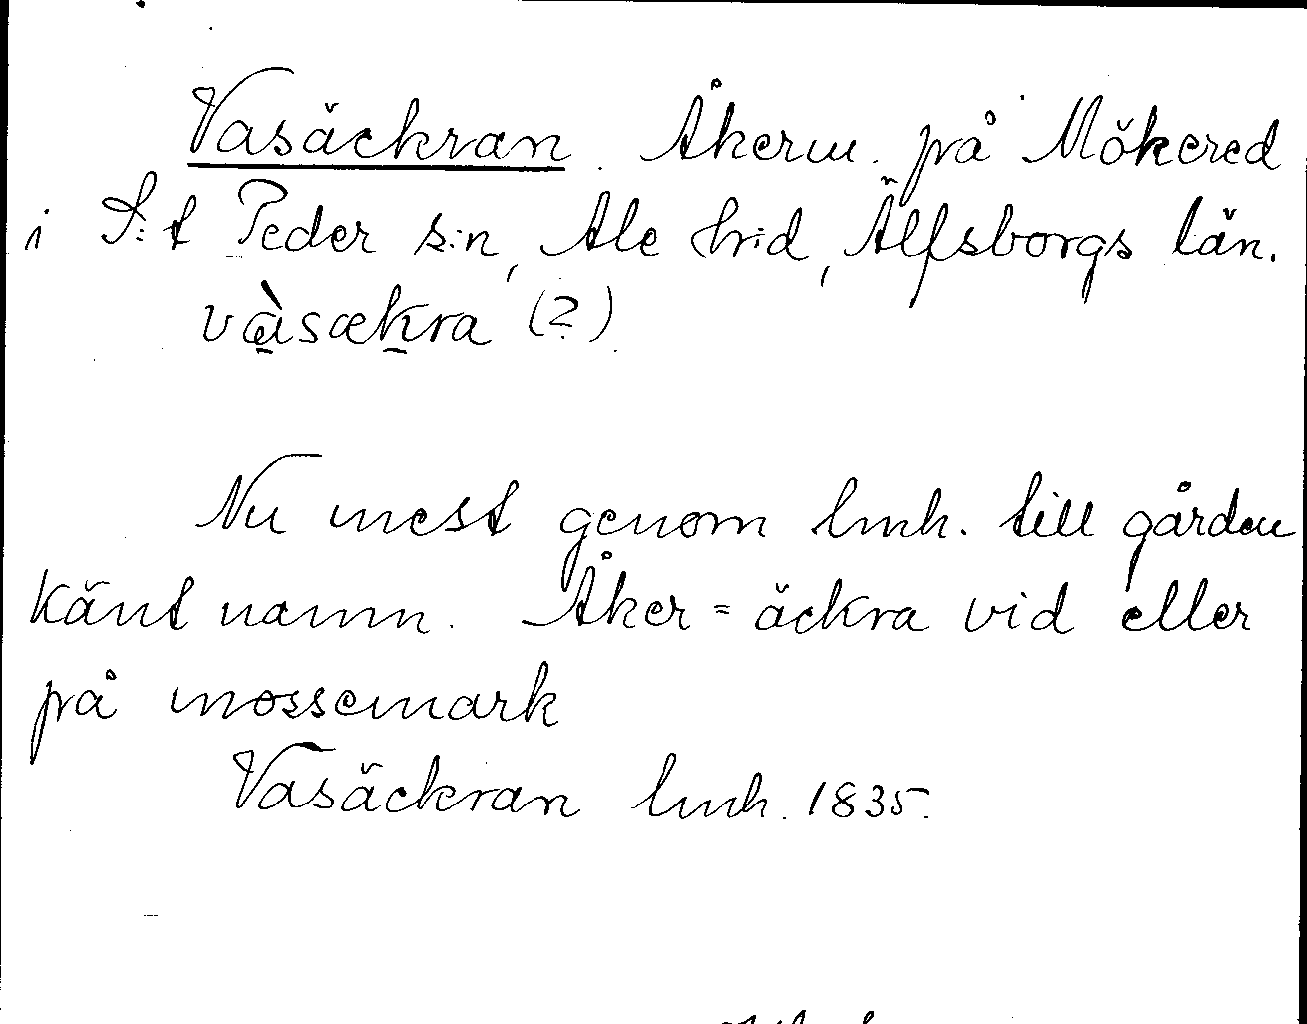 Vasäckran. Åkerm. på Mökered
i S:t Peder s:n, Ale hrd, Älfsborgs län.
vàsækra (?).
Nu mest genom lmh. till gården
känt namn. Åker = äckra vid eller
på mossemark
Vasäckran lmh. 1835.